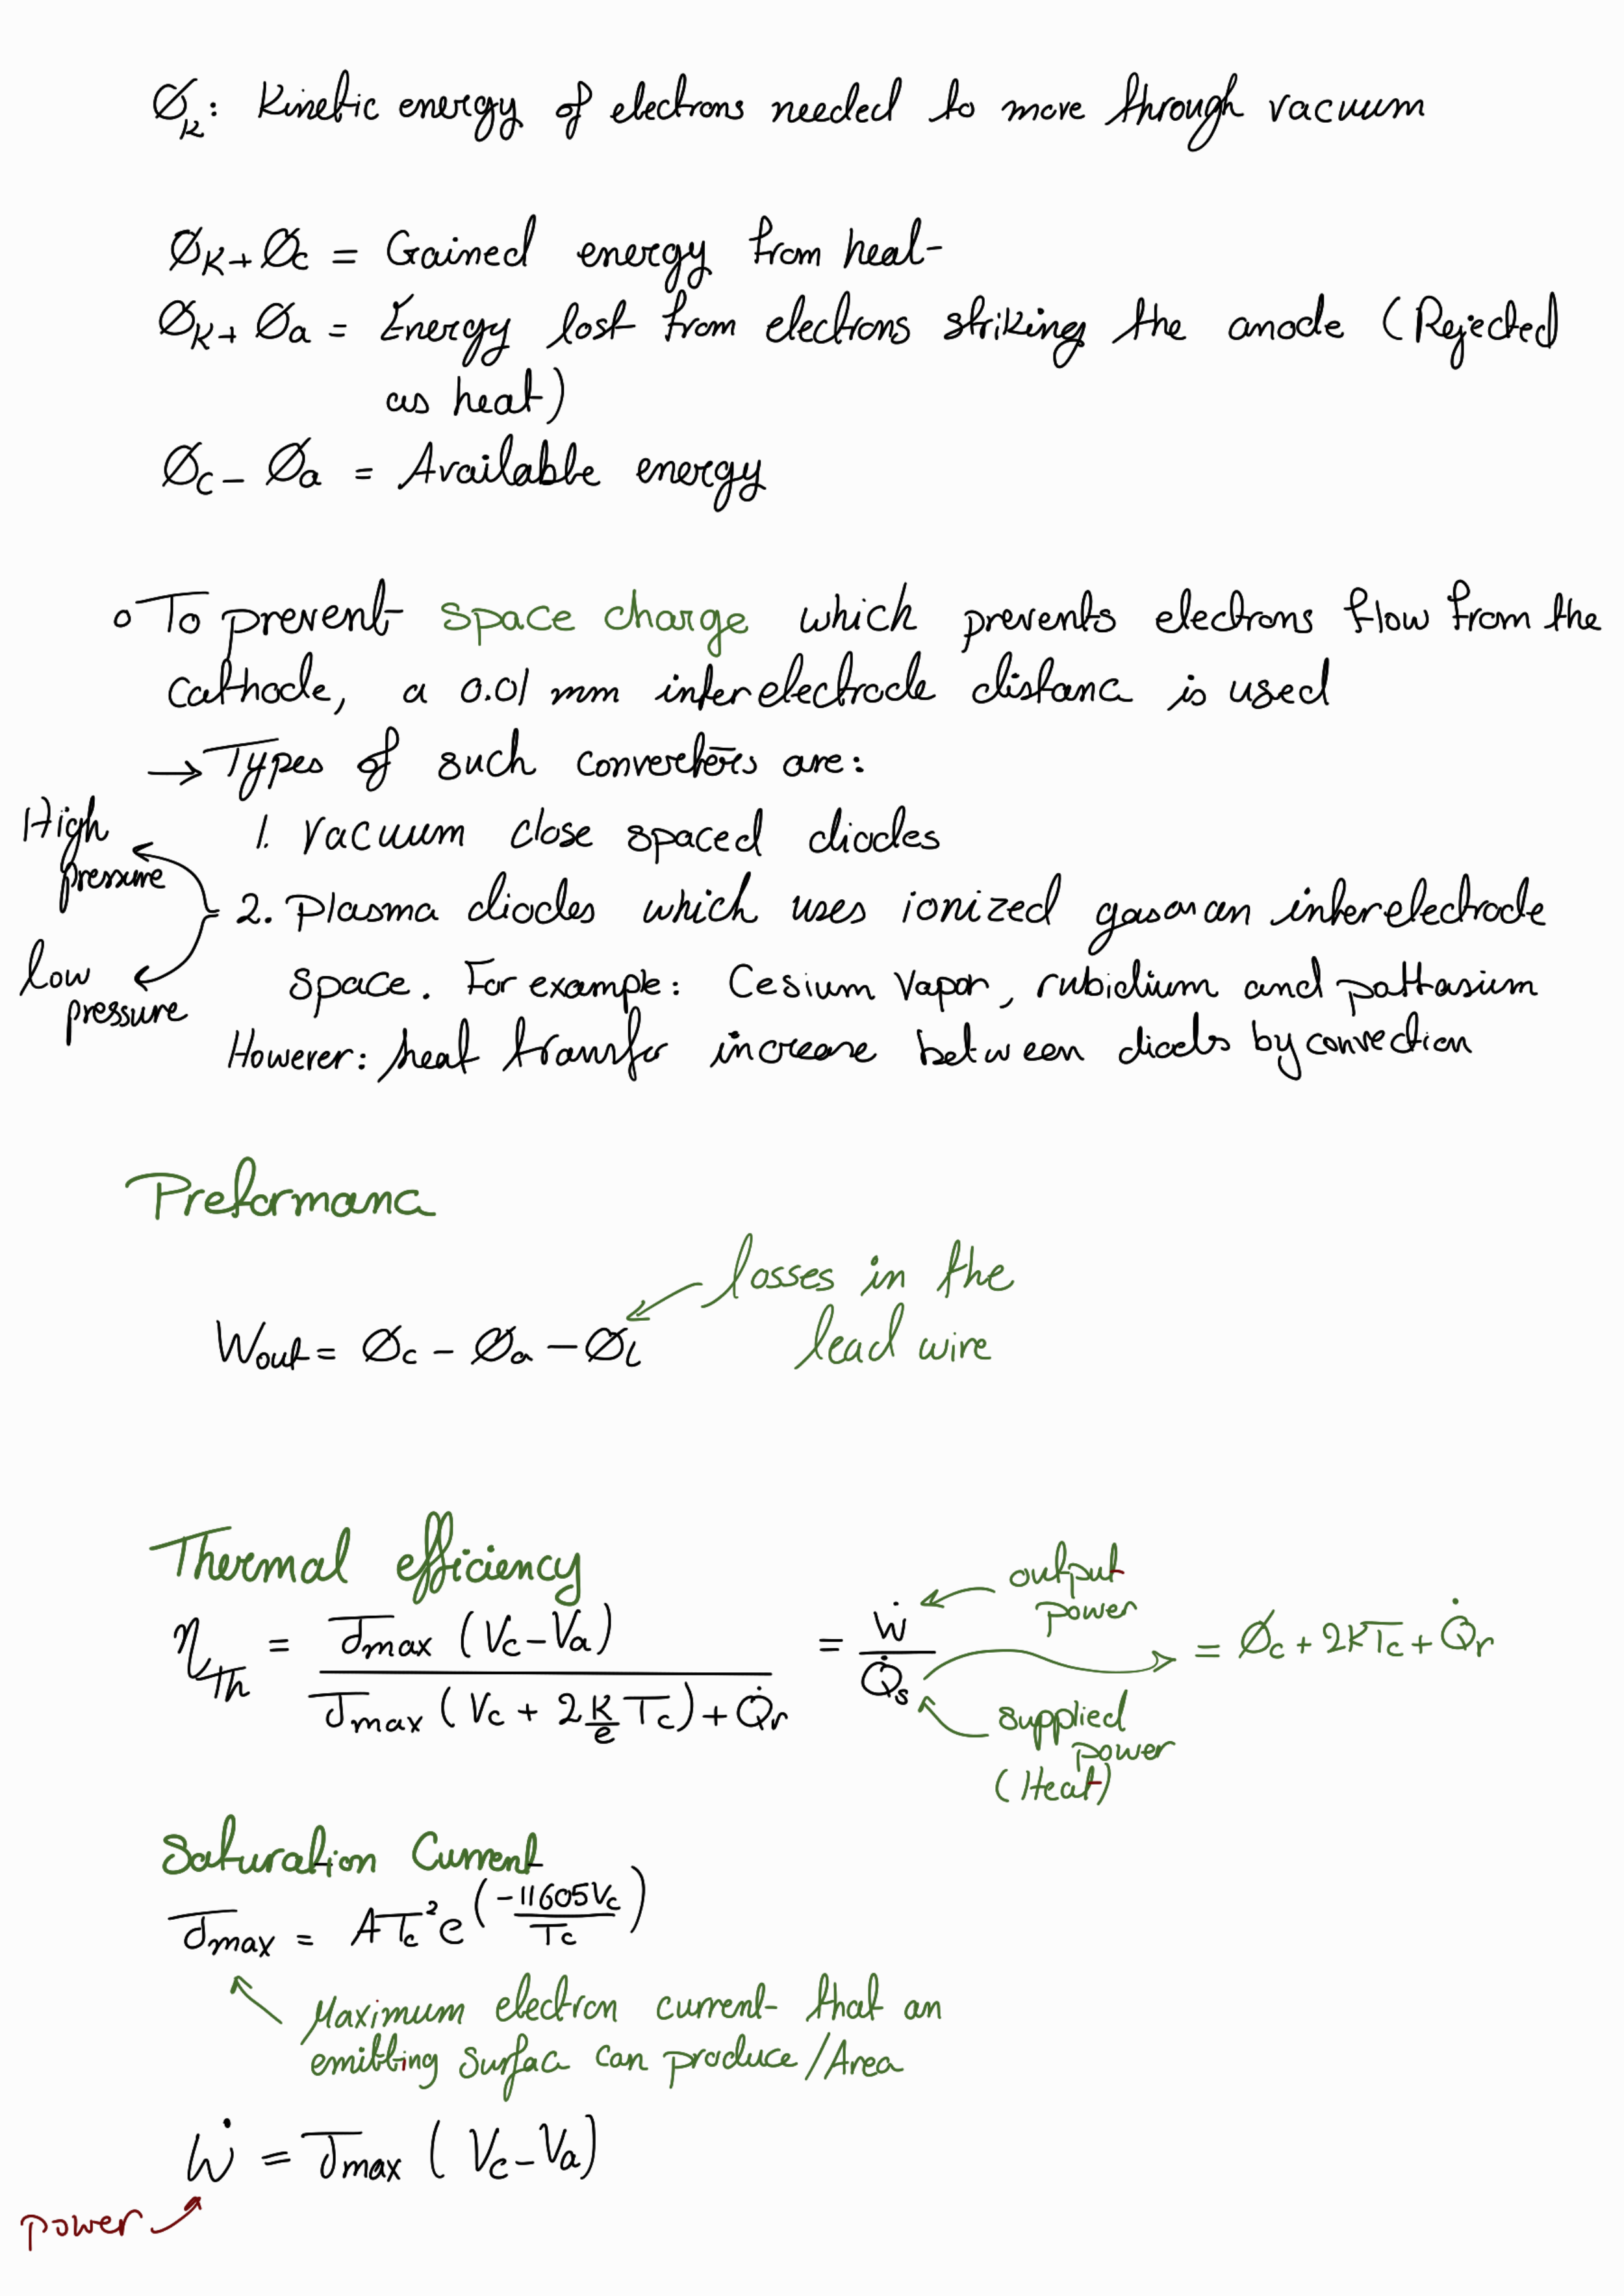 ∅k: Kinetic energy of electrons needed to move through vacuum
∅K + ∅c = Gained energy from heat
∅K + ∅a = Energy lost from electrons striking the anode (Rejected
as heat)
∅c - ∅a = Available energy
o To prevent space charge which prevents electrons flow from the
Cathode, a 0.01 mm interelectrode distanc is used
→ Types of such converters are:
1. Vacuum close spaced diodes
High
pressure
2. Plasma diodes which uses ionized gas on an interelectrode
low
pressure
space. For example: Cesium Vapor, rubidium and pottasium
However: heat transfer increase between diodes by convection
Preformanc
losses in the
lead wire
Wout = ∅c - ∅a - ∅L
Thermal efficiency
ηTh = Jmax (Vc - Va) / (Jmax (Vc + 2 K/e Tc) + Q̇r) = Ẇ / Q̇s = ∅c + 2KTc + Q̇r
output
power
supplied
power
(Heat)
Saturation Current
Jmax = ATc² e^(-11605Vc / Tc)
Maximum electron current that an
emitting surfac can produce/Area
Ẇ = Jmax (Vc - Va)
power